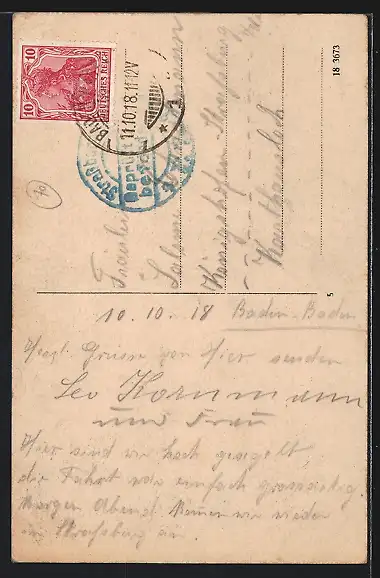 10 10
DEUTSCHES REICH
BADEN
11.10.18.11-12V
18 3673
70
Straßb
Geprüft
Fräulein
Salome
Königshofen-Straßburg
Karthause
5
10. 10. 18 Baden-Baden
Herzl. Grüsse von Hier senden
Leo Kornmann
und Frau
Hier sind wir hoch
die Fahrt war einfach grossartig
Morgen Abend kommen wir wieder
in Strassburg an.